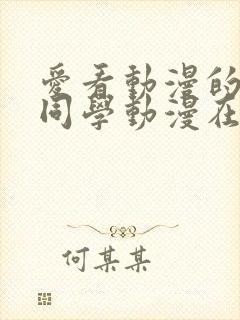 愛看動漫的
同學動漫在
何某某